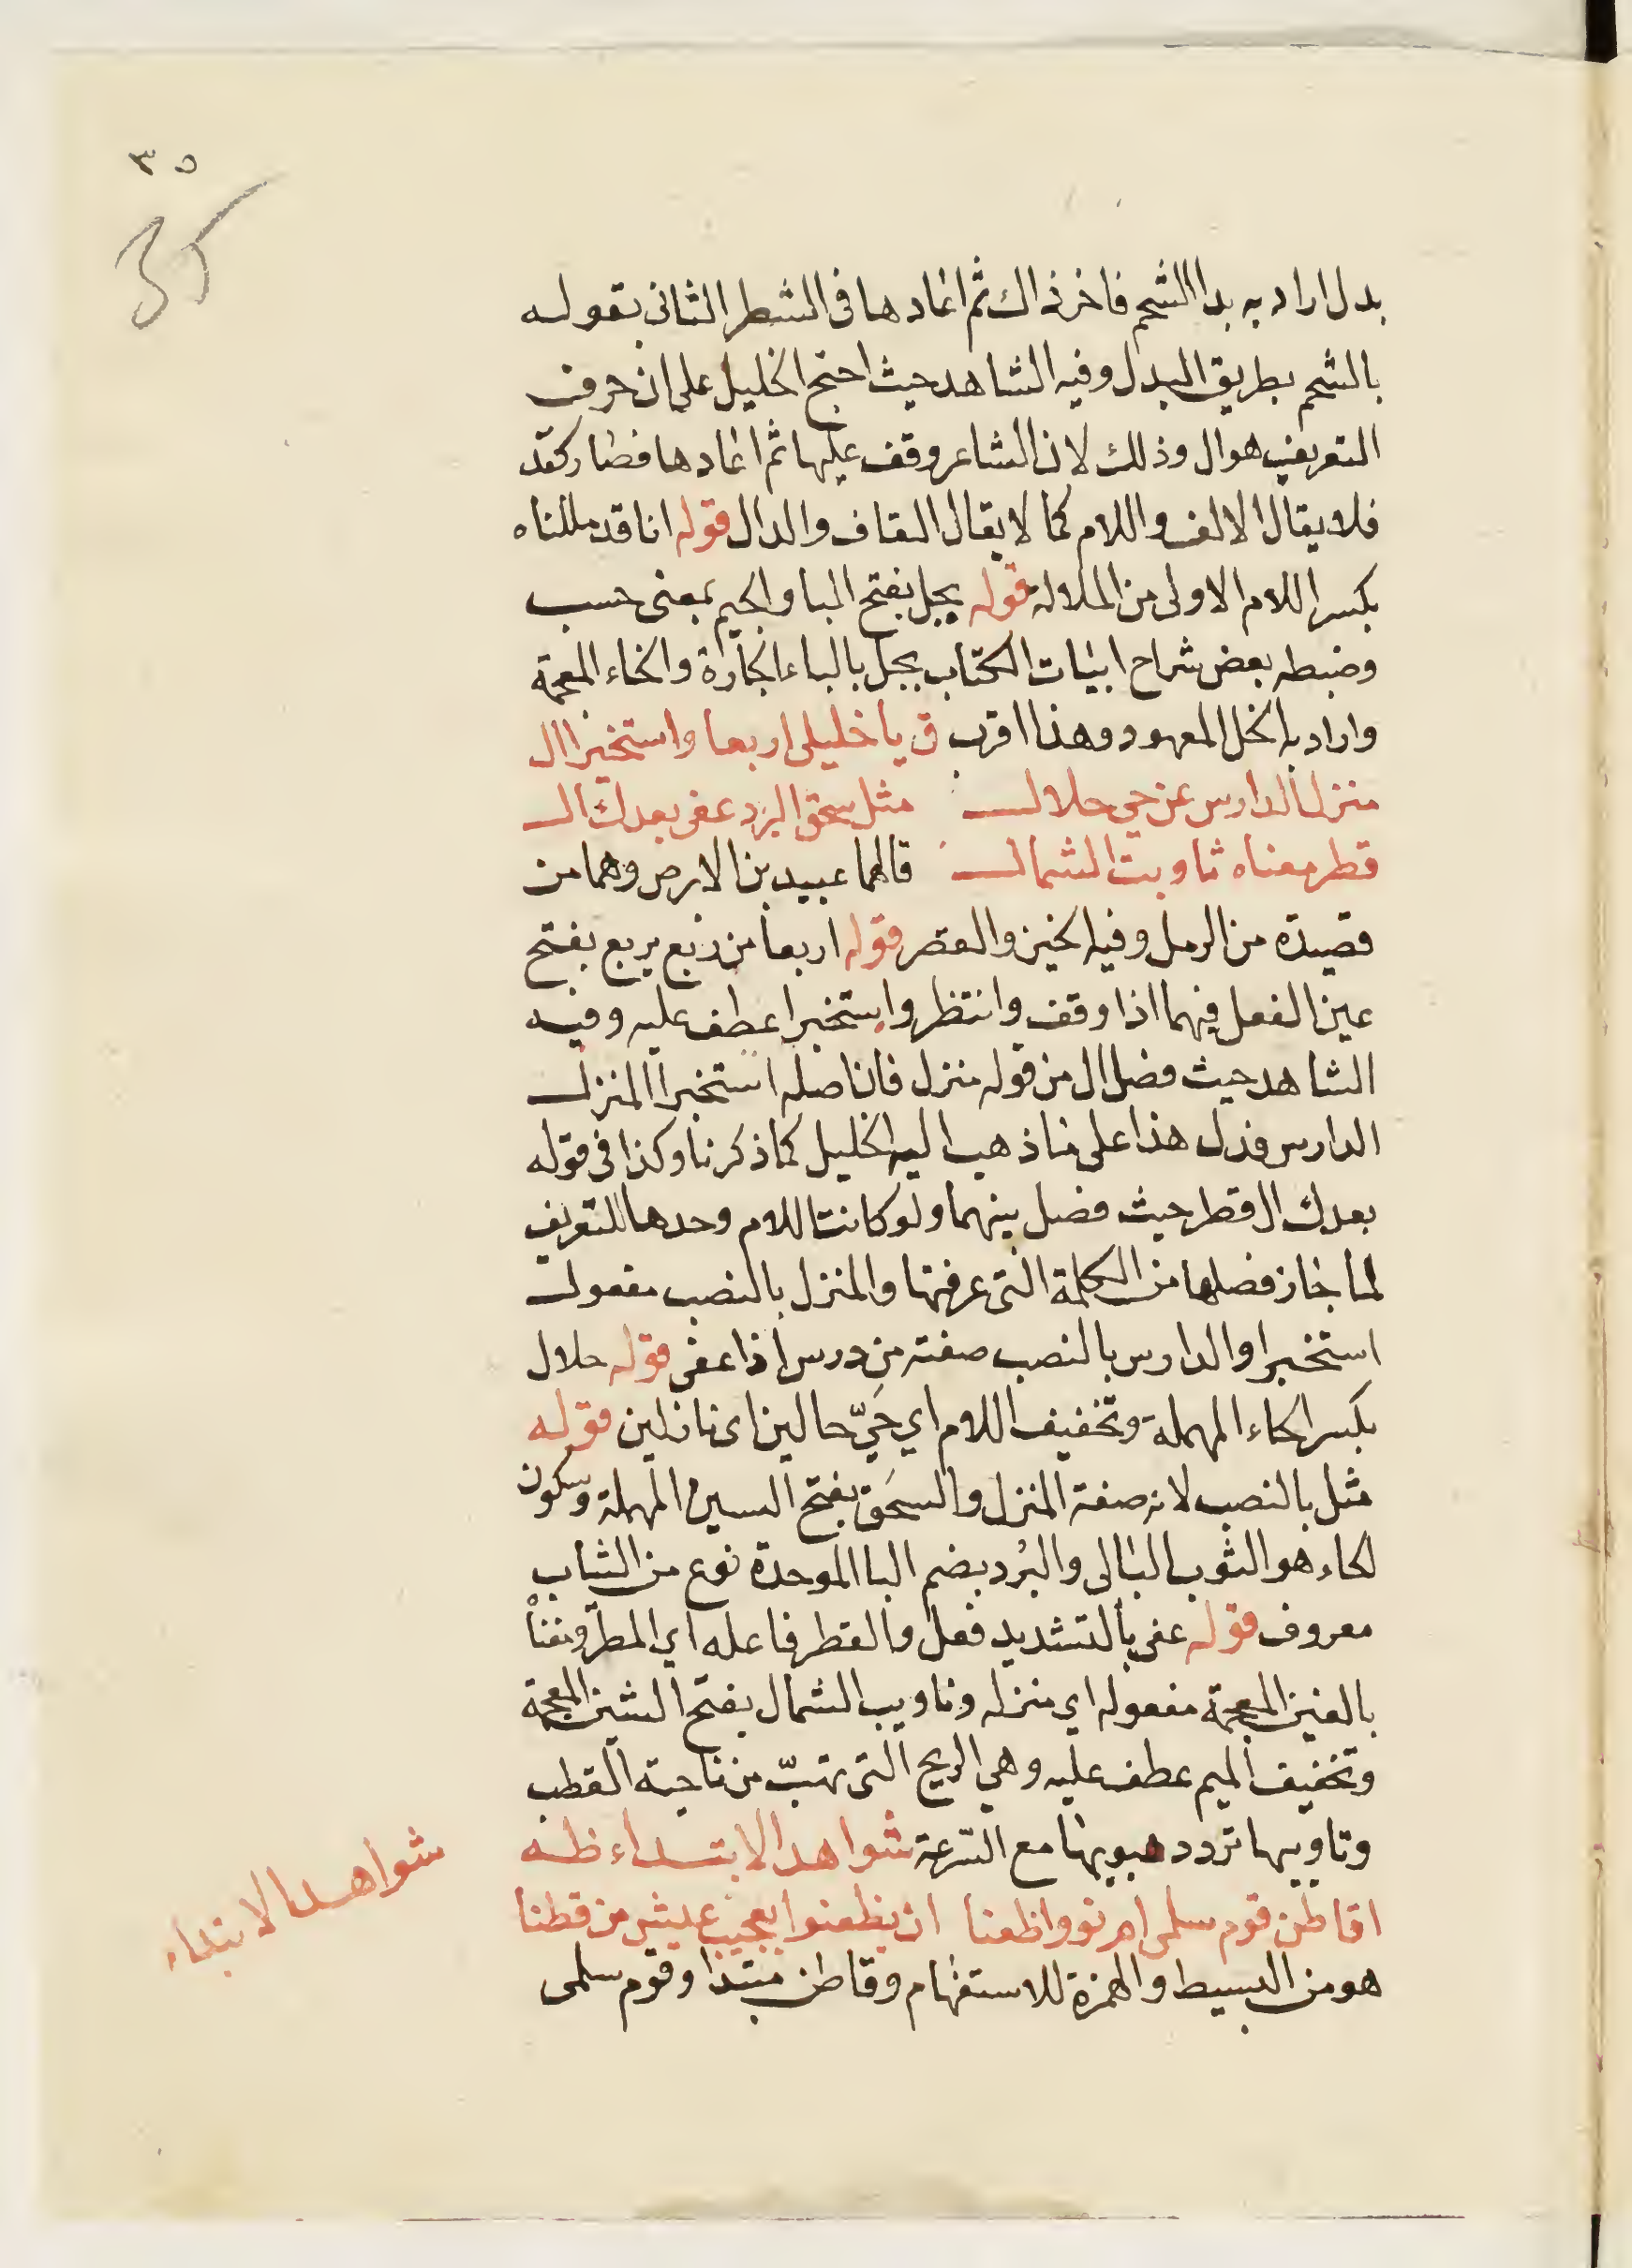 ٣٥
35
بدل اراد به بدا الشحم فاخر ذاك ثم اعادها فى الشطر الثانى بقوله
بالشحم بطريق البدل وفيه الشاهد حيث احتج الخليل على ان حرف
التعريف هو ال وذلك لان الشاعر وقف عليها ثم اعادها فصار كقد
فلا يقال الالف واللام كما لا يقال القاف والدال قوله انا قد مللناه
بكسر اللام الاولى من الملالة قوله بجل بفتح البا والجيم بمعنى حسب
وضبطه بعض شراح ابيات الكتاب بجل بالباء الجارة والخاء المعجمة
واراد به الخل المعهود وهذا اقرب ق يا خليلى اربعا واستخبرا ال
منزل الدارس عن حي حلال مثل سحق البرد عفى بعدك ال
قطر مغناه تاويب الشمال قالهما عبيد بن الابرص وهما من
قصيدة من الرمل وفيه الخبن والقصر قوله اربعا من ربع يربع بفتح
عين الفعل فيهما اذا وقف وانتظر واستخبرا عطف عليه وفيه
الشاهد حيث فصل ال من قوله منزل فان اصله استخبرا المنزل
الدارس فدل هذا على ما ذهب اليه الخليل كما ذكرنا وكذا فى قوله
بعدك ال قطر حيث فصل بينهما ولو كانت اللام وحدها للتعريف
لما جاز فصلها من الكلمة التى عرفتها والمنزل بالنصب مفعول
استخبرا والدارس بالنصب صفته من درس اذا عفى قوله حلال
بكسر الحاء المهملة وتخفيف اللام اي حَيّ حالين اى نازلين قوله
مثل بالنصب لانه صفة المنزل والسَحق بفتح السين المهملة وسكون
لحاء هو الثوب البالى والبُرد بضم البا الموحدة نوع من الثياب
معروف قوله عفى بالتشديد فعل والقطر فاعله اي المطر ومغناه
بالغين المعجمة مفعوله اي منزله وتاويب الشمال بفتح الشين المعجمة
وتخفيف الميم عطف عليه وهي الريح التى تهبّ من ناحية القطب
وتاويبها تردد هبوبها مع السّرعة شواهد الابتداء ظه
اقاطن قوم سلمى ام نووا ظعنا ان يظعنوا فعجيب عيش من قطنا
هو من البسيط والهمزة للاستفهام وقاطن مبتدا وقوم سلمى
شواهد الابتداء